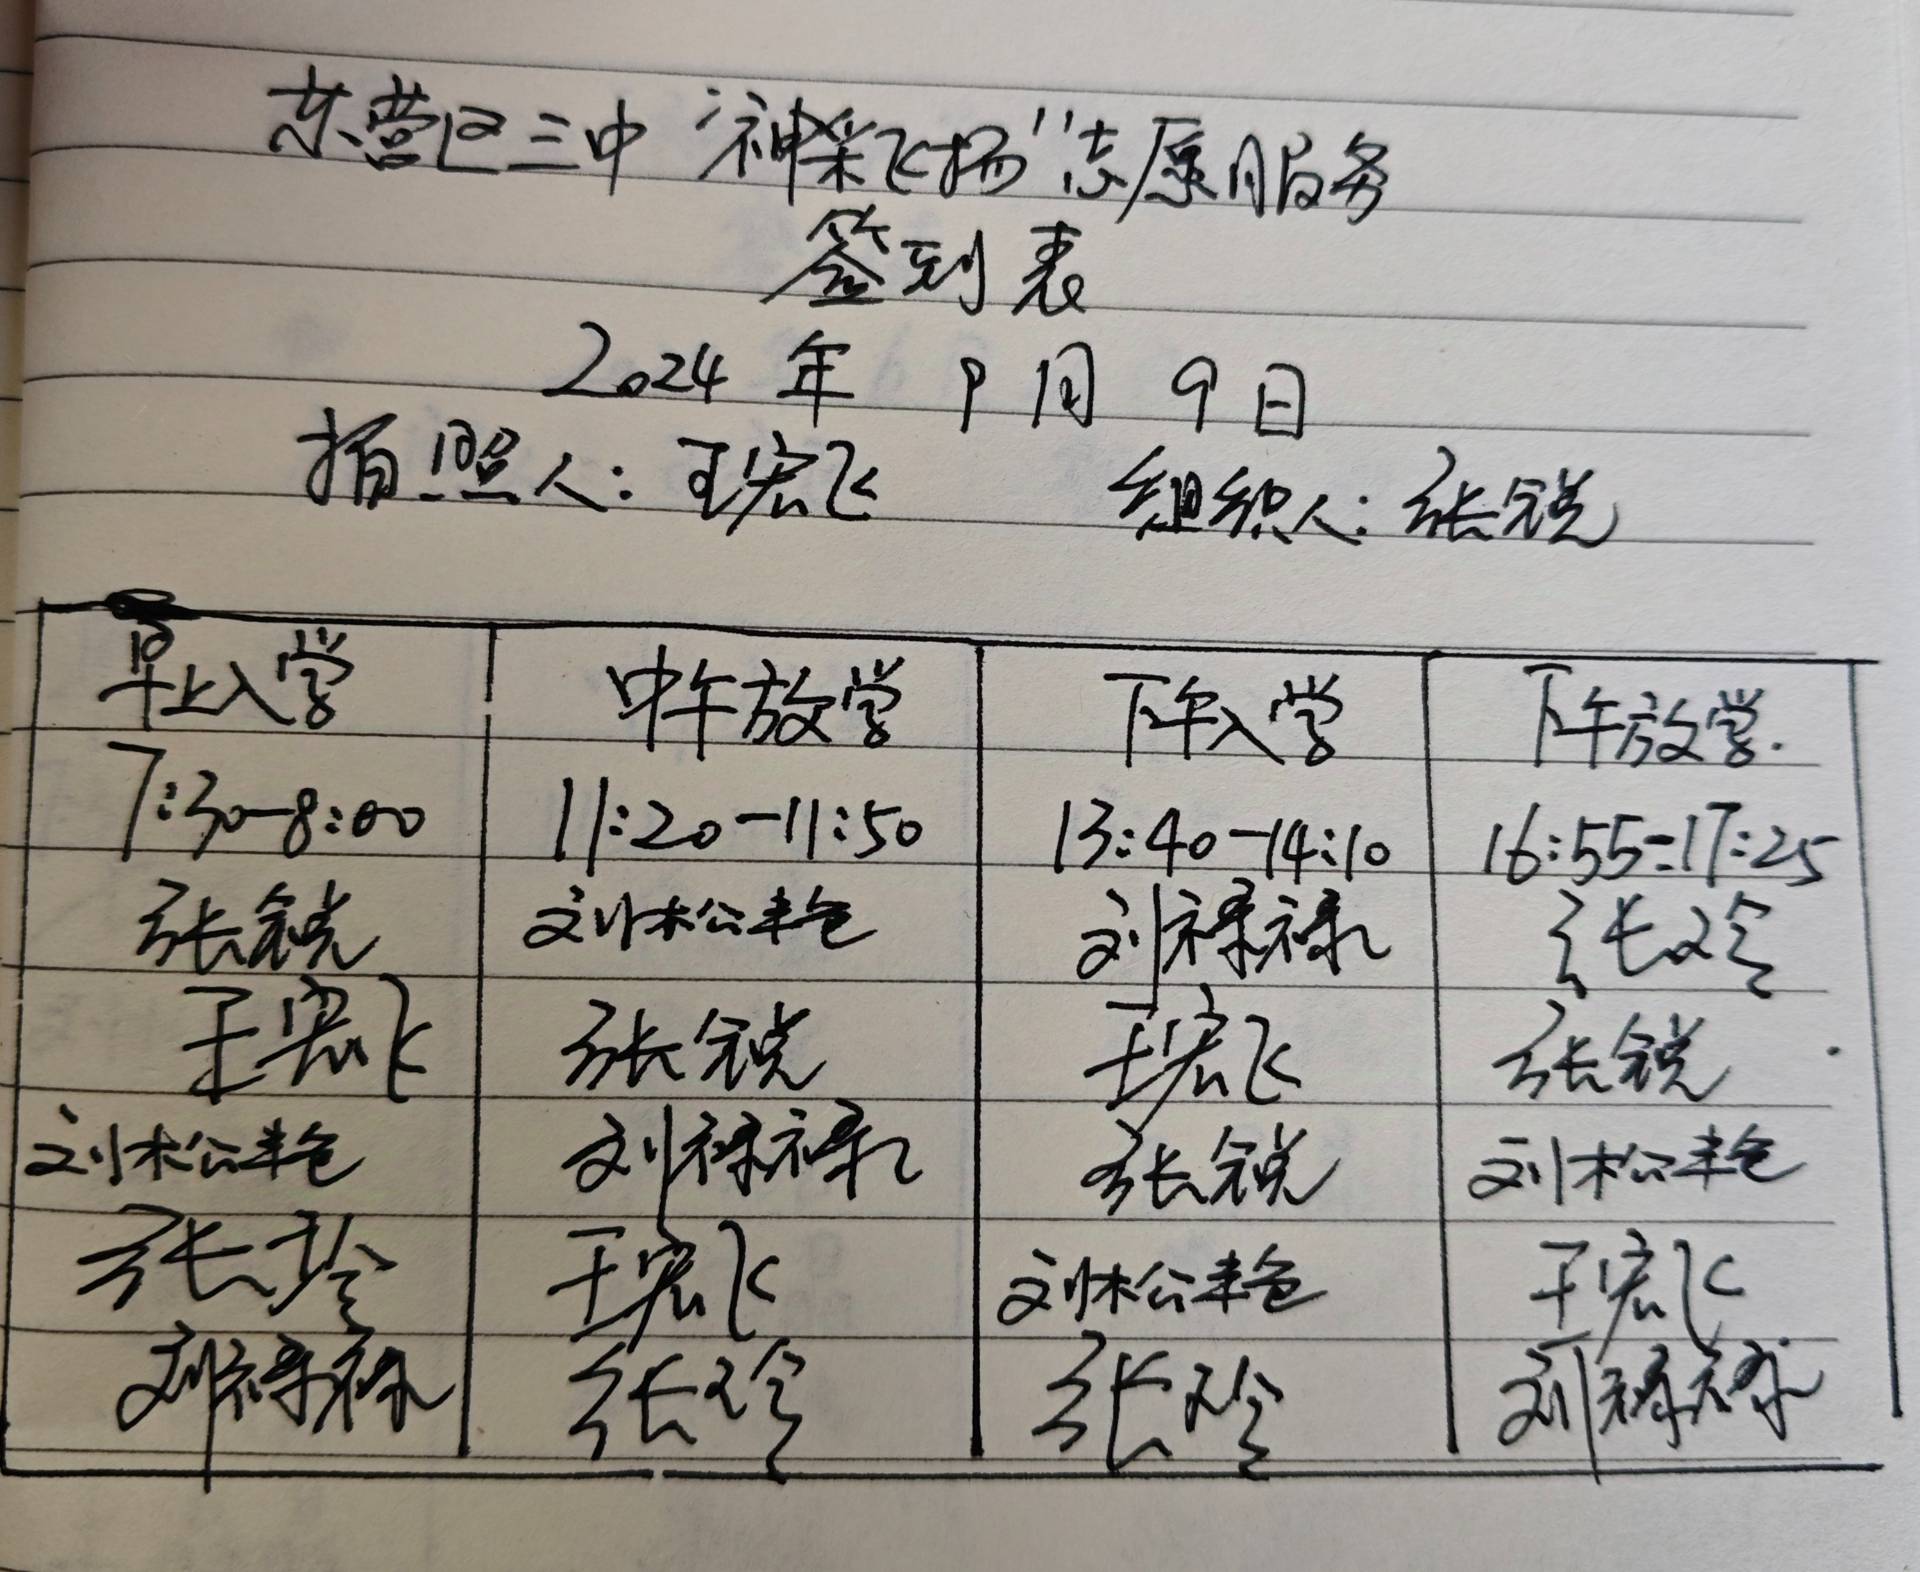 东营区三中“神采飞扬”志愿服务
签到表
2024年 9月 9日
拍照人：王宏飞 组织人：张锐
早上入学 中午放学 下午入学 下午放学.
7:30-8:00 11:20-11:50 13:40-14:10 16:55-17:25
张锐 刘松艳 刘禄禄 张玲
王宏飞 张锐 王宏飞 张锐
刘松艳 刘禄禄 张锐 刘松艳
张玲 王宏飞 刘松艳 王宏飞
刘禄禄 张玲 张玲 刘禄禄